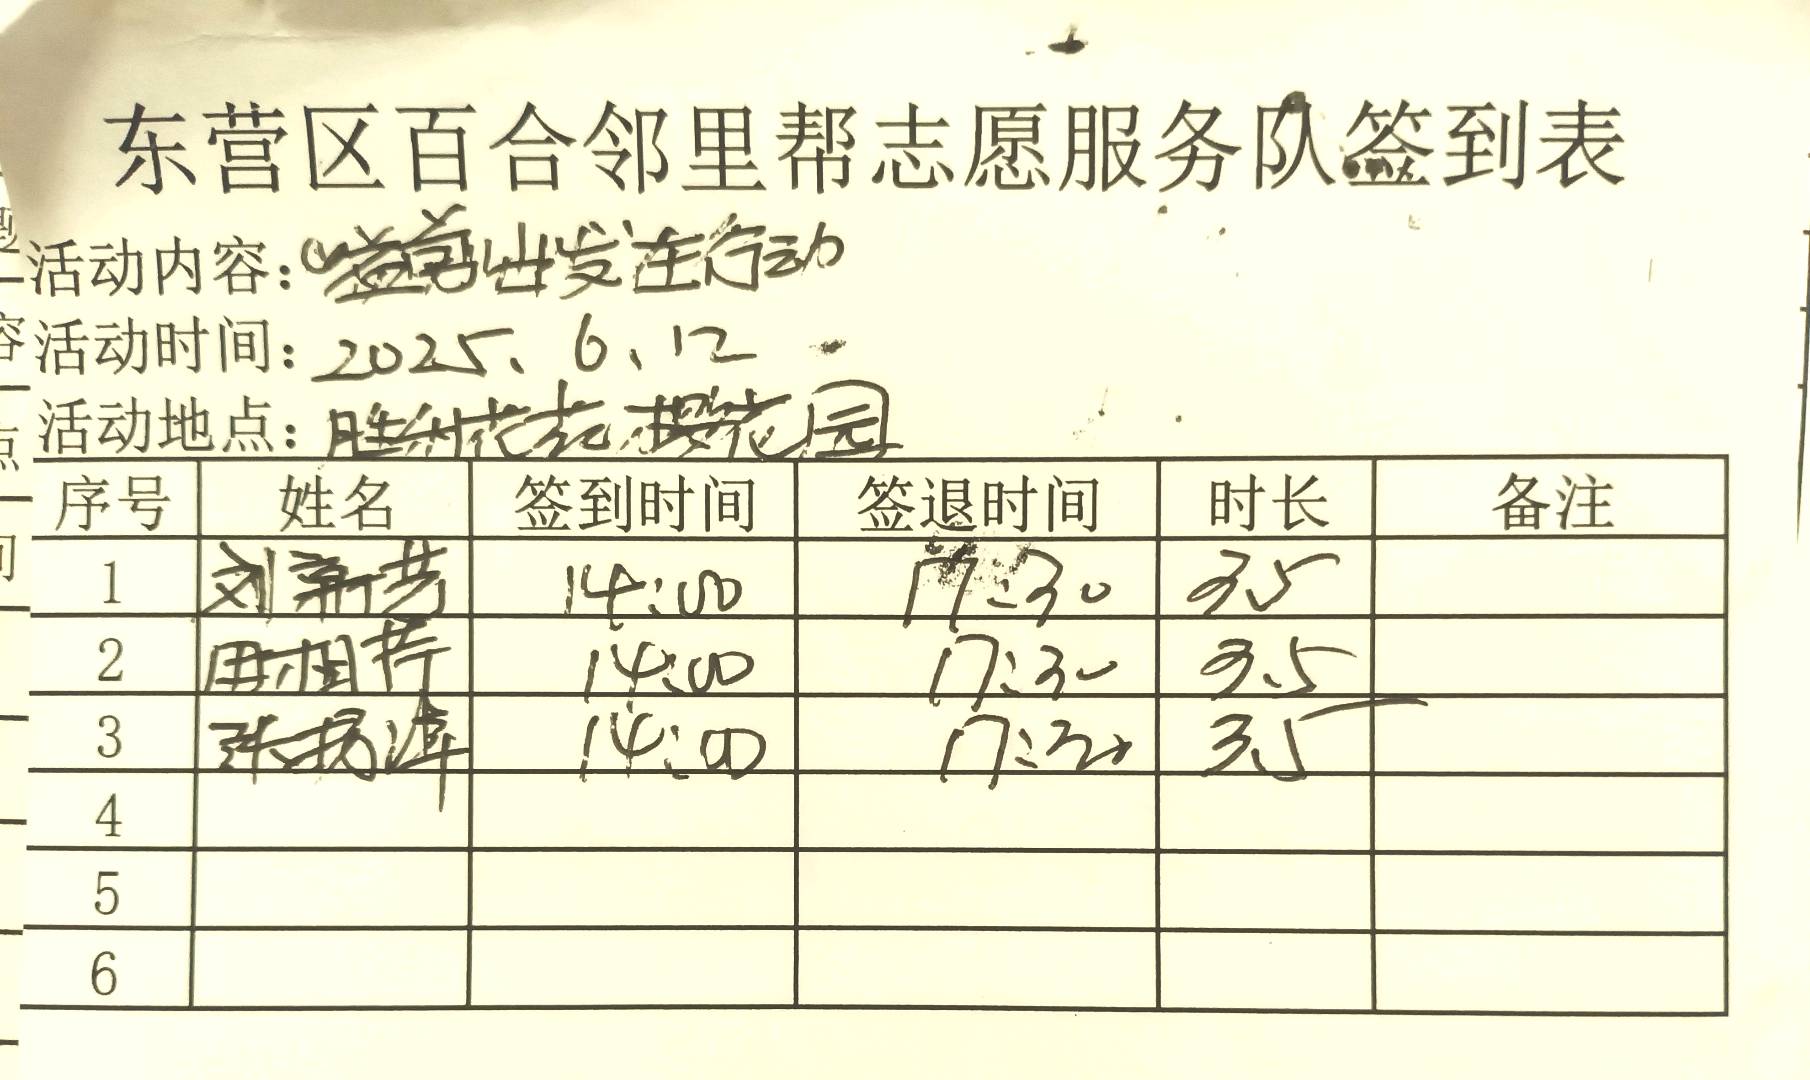 东营区百合邻里帮志愿服务队签到表
活动内容：益剪出发在行动
活动时间：2025、6、12
活动地点：胜利花苑 樱花园
序号 姓名 签到时间 签退时间 时长 备注
1 刘新芳 14:00 17:30 3.5
2 田相芹 14:00 17:30 3.5
3 张 14:00 17:30 3.5
4
5
6